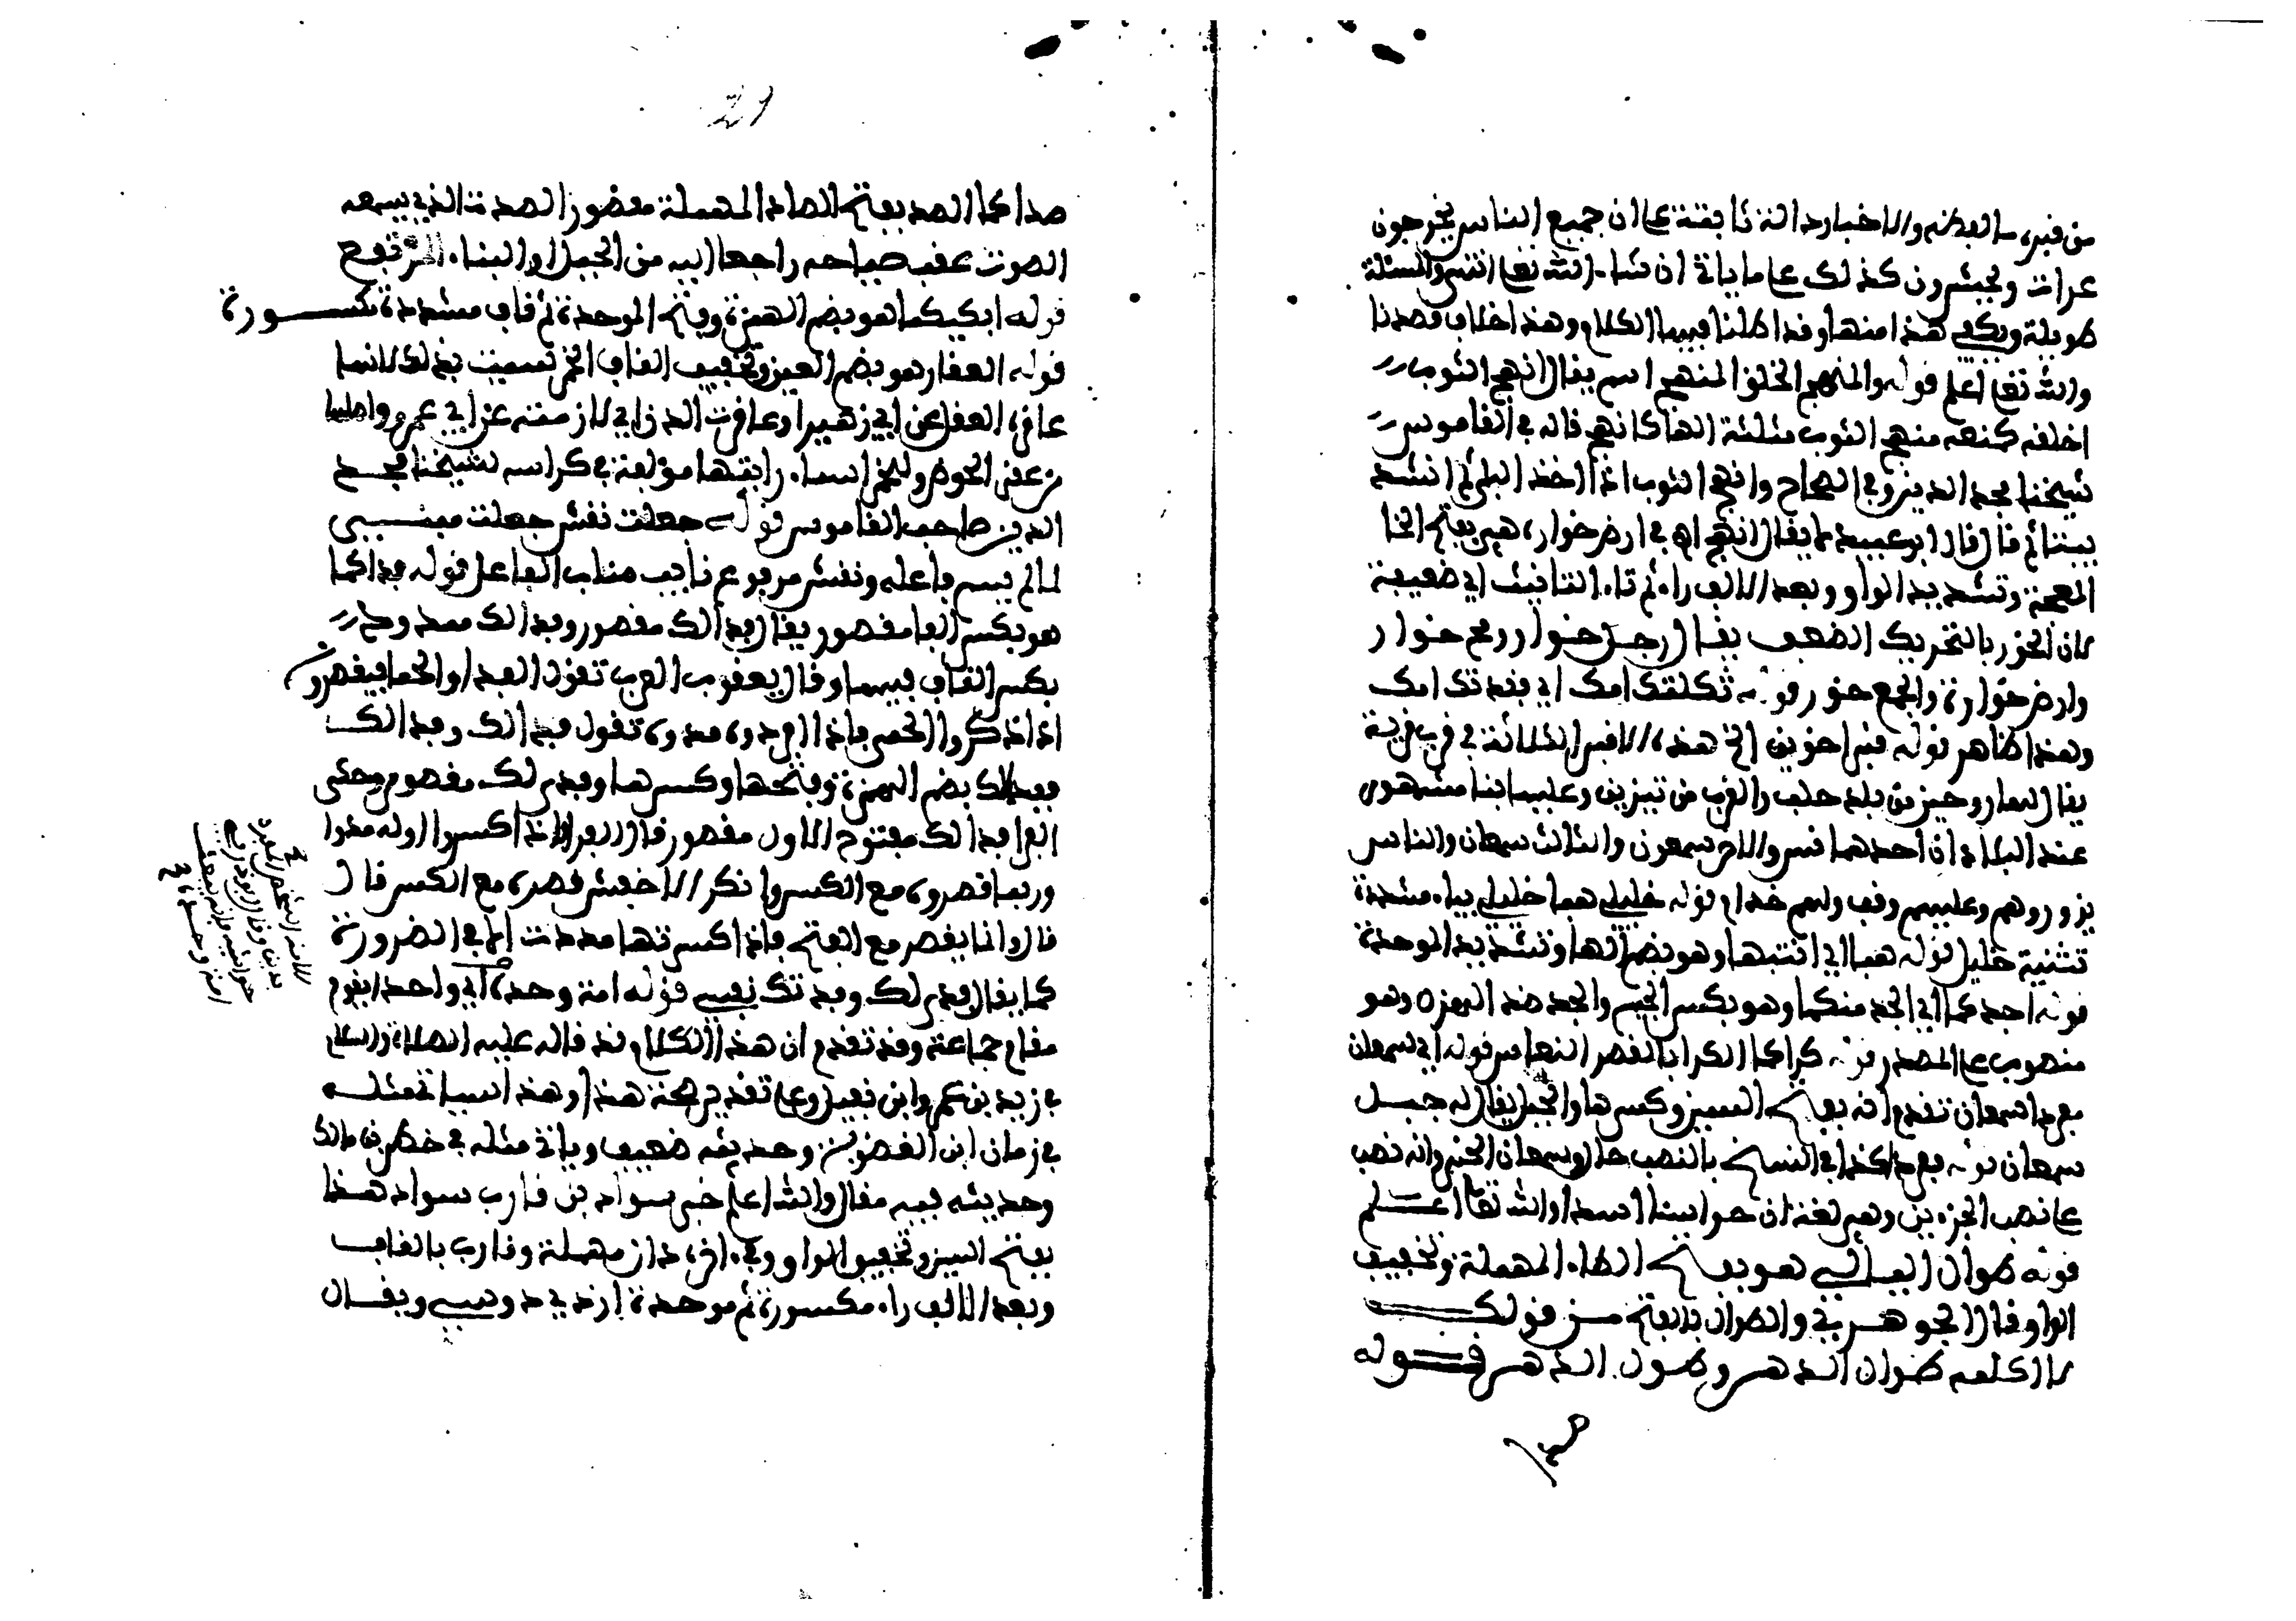 من قبره العظيم والاخبار دالة ثابتة على ان جميع الناس يخرجون
عراة ويحشرون كذلك على ما ياتي ان شاء الله تعلى انتهى والمسئلة
طويلة ويكفي هذا منها وقد اطلنا فيها الكلام وهذا خلاف قصدنا
والله تعلى اعلم قوله والمنهج الخلق المنهج اسم يقال انهج الثوب
اخلقه كمنعه منهج الثوب مثلثة الهاء كانهج قاله في القاموس
شيخنا مجد الدين وفي الصحاح وانهج الثوب اذا اخذ البلى ثم انشد
بيتا ثم قال قال ابو عبيد ما يقال انهج اه في ارض خوارة هي بفتح الخا
المعجمة وتشديد الواو وبعد الالف راء ثم تاء التانيث اي ضعيفة
لان الخور بالتحريك الضعف يقال رجل خوار ورمح خوار
وارض خوارة والجمع خور قوله ثكلتك امك اي فقدتك امك
وهذا ظاهر قوله قبر اخوين الخ هذه الاقبر الثلاثة في قرب قرية
يقال لها روحين من بلد حلب بالقرب من تيزين وعليها بنا مشهور
عند البلاد ان احدهما قس والاخر سمعون والثالث سمعان والناس
يزورونهم وعليهم وقف ولهم خدام قوله خليلي هبا خليلي بياء مشددة
تثنية خليل قوله هبا اي انتبها وهو بضم الها وتشديد الموحدة
قوله اجدكما اي الجد منكما وهو بكسر الجيم والجد ضد الهزل وهو
منصوب على المصدر قوله كراكما الكرا بالقصر النعاس قوله اي سمعان
مفردا سمعان تقدم انه بفتح السين وكسرها والجبل يقال له جبل
سمعان قوله مفردا كذا في النسخ بالنصب حال وسمعان الخبر وانه نصب
على نصب الجزءين وهي لغة ان حراسنا اسدا والله تعلى اعلم
قوله طوال الليالي هو بفتح الطاء المهملة وتخفيف
الواو قال الجوهري والطوال بالفتح من قولك
لا اكلمه طوال الدهر وطول الدهر قوله
صدا
21
صداكما الصد بفتح الصاد المهملة مقصور الصدت الذي يسمعه
الصوت عقب صياحه راجعا اليه من الجبل او البناء المرتفع
قوله ابكيكما هو بضم الهمزة وفتح الموحدة ثم قاف مشددة مكسورة
قوله العقار هو بضم العين وتخفيف القاف الخمر سميت بذلك لانها
عاقرة العقل عن ابي زهير او عاقرت الدن اي لازمته عن ابي عمرو واصلها
من عقر الحوض وللخمر اسماء رايتها مؤلفة في كراسة لشيخنا مجد
الدين صاحب القاموس قوله جعلت نفس جعلت مبني
لما لم يسم فاعله ونفس مرفوع نايب مناب الفاعل قوله فداكما
هو بكسر الفا مقصور يقال فدالك مقصور وفدا لك ممدود
بكسر القاف فيهما وقال يعقوب العرب تقول الفدا والحما فيقصرون
اذا ذكروا الحمى فاذا افردوه مدوه تقول فدا لك وفدا لك
وفدا لك بضم الهمزة وفتحها وكسرها وفدى لك مقصور وحكى
الفرا فدا لك مفتوح الاول مقصور قال الفرا اذا كسروا اوله مدوا
وربما قصروه مع الكسر وانكر الاخفش قصره مع الكسر قال
قال وانما يقصر مع الفتح فاذا كسرتها مددت الا في الضرورة
كما يقال فدى لك وفدتك نفسي قوله امة وحده اي واحدا يقوم
مقام جماعة وقد تقدم ان هذا الكلام قد قاله عليه الصلاة والسلام
في زيد بن عمرو ابن نفيل وعلى تقدير صحة هذا وهذا سياتي مثله
في زمان ابن الغضوبن وحديثه ضعيف وياتي مثله في خطر بن مالك
وحديثه فيه مقال والله اعلم خبر سواد بن قارب سواد هذا
بفتح السين وتخفيف الواو وفي اخره دال مهملة وقارب بالقاف
وبعد الالف راء مكسورة ثم موحدة ازدي دوسي ويقال